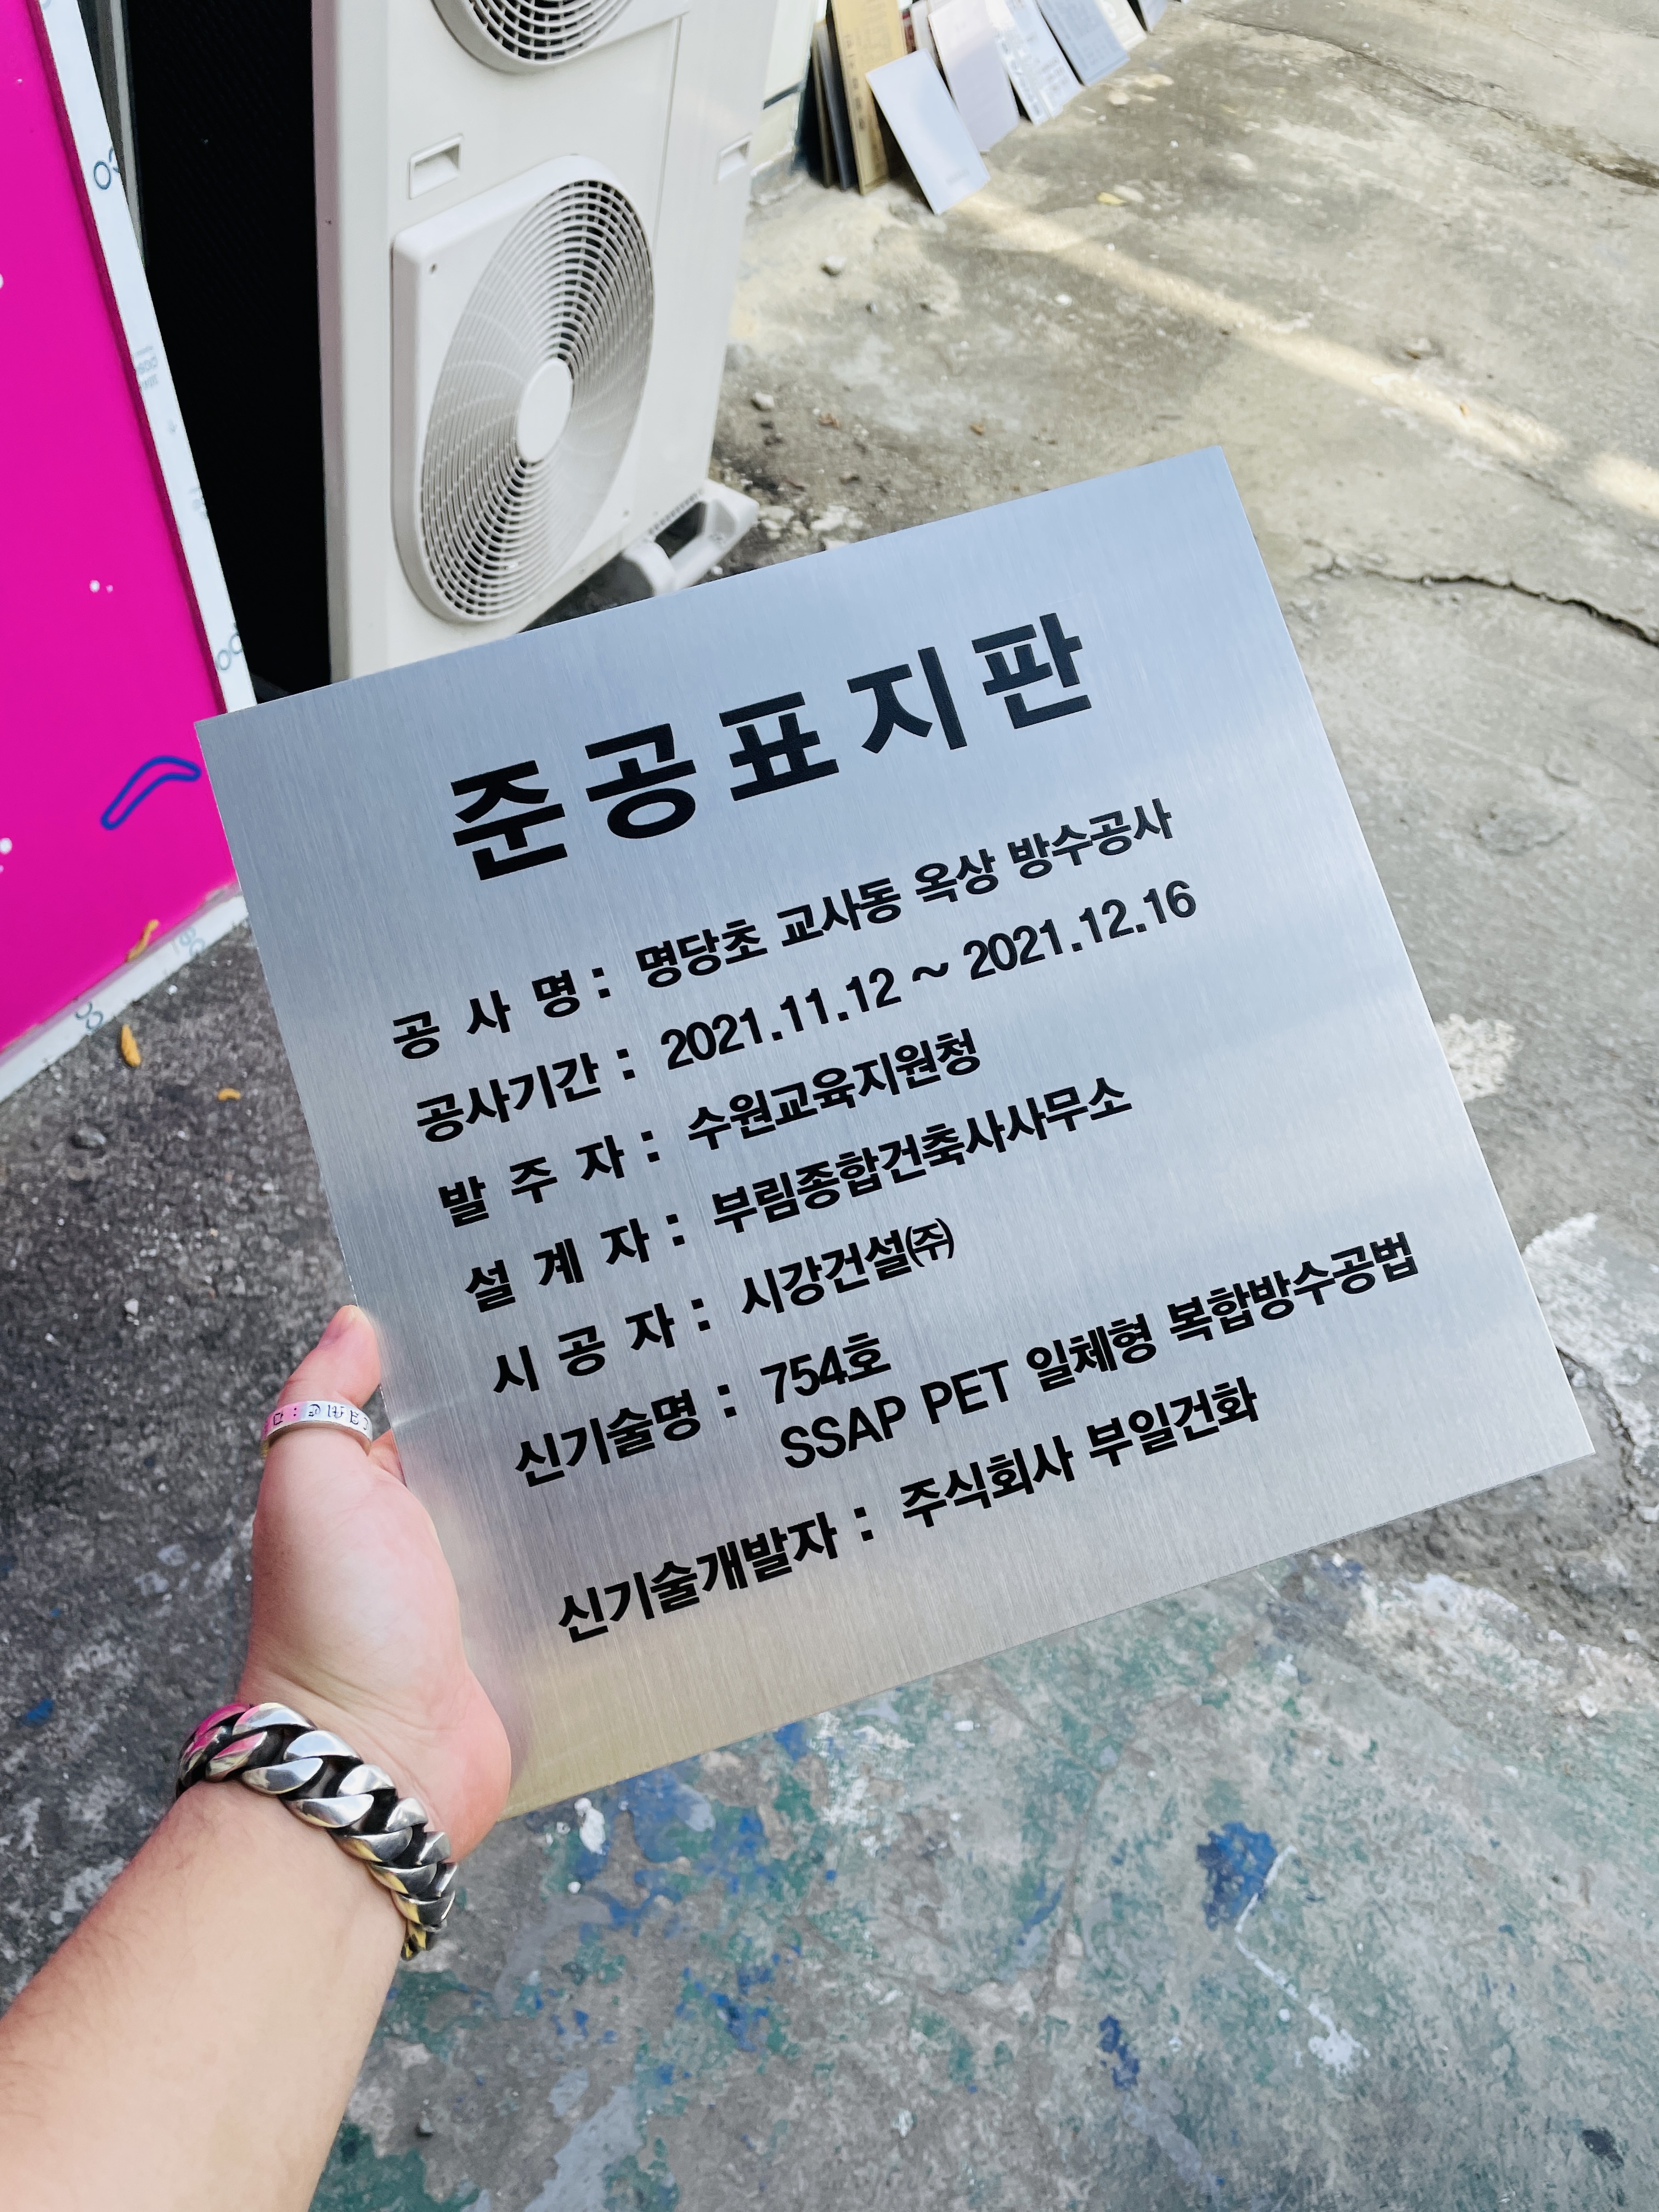 준공표지판
공 사 명 : 명당초 교사동 옥상 방수공사
공사기간 : 2021.11.12 ~ 2021.12.16
발 주 자 : 수원교육지원청
설 계 자 : 부림종합건축사사무소
시 공 자 : 시강건설㈜
신기술명 : 754호
SSAP PET 일체형 복합방수공법
신기술개발자 : 주식회사 부일건화